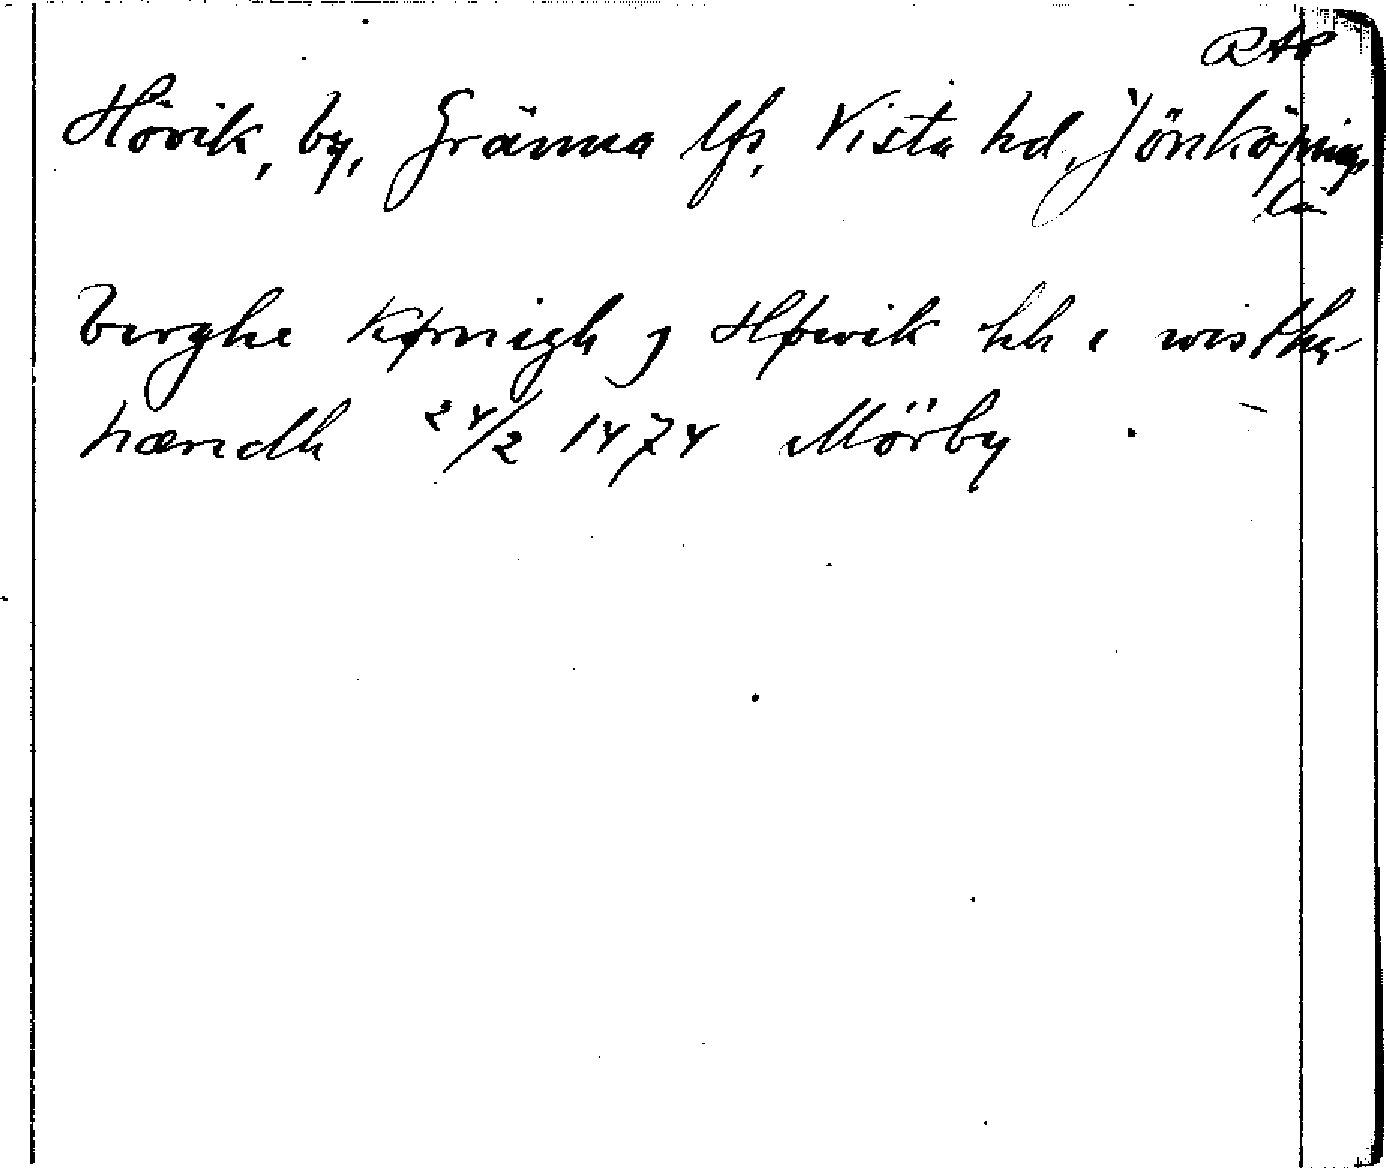 RAP
Hövik, by, Gränna lfs, Vista hd, Jönköpings
län
berghe Kørnigh j Høwik hh i wistha
hærædh 24/2 1474 Mörby